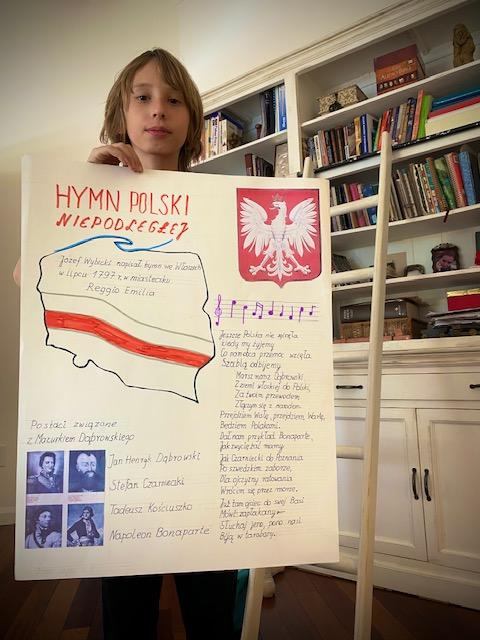 HYMN POLSKI
NIEPODLEGŁEJ
Józef Wybicki napisał hymn we Włoszech
w lipcu 1797 r. w miasteczku
Reggio Emilia
Postaci związane
z Mazurkiem Dąbrowskiego
Jan Henryk Dąbrowski
Stefan Czarniecki
Tadeusz Kościuszko
Napoleon Bonaparte
Jeszcze Polska nie zginęła
kiedy my żyjemy
Co nam obca przemoc wzięła
Szablą odbijemy
Marsz marsz Dąbrowski
Z ziemi włoskiej do Polski,
Za twoim przewodem
Złączym się z narodem
Przejdziem Wisłę, przejdziem Wartę,
Będziem Polakami.
Dał nam przykład Bonaparte,
Jak zwyciężać mamy.
Jak Czarniecki do Poznania
Po szwedzkim zaborze,
Dla ojczyzny ratowania
Wrócim się przez morze.
Już tam ojciec do swej Basi
Mówi zapłakany
Słuchaj jeno, pono nasi
Biją w tarabany.